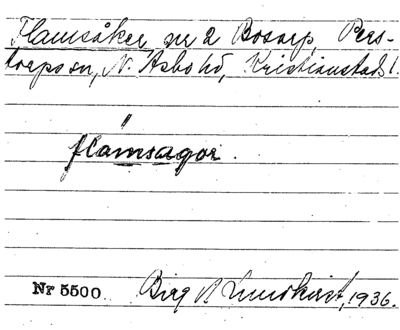 Flamsåker nr 2 Bosarp, Pers-
torps sn, N. Åsbo hd, Kristianstads l.
"
flamsagor.
Nr 5500 Birg A Lundkvist, 1936.